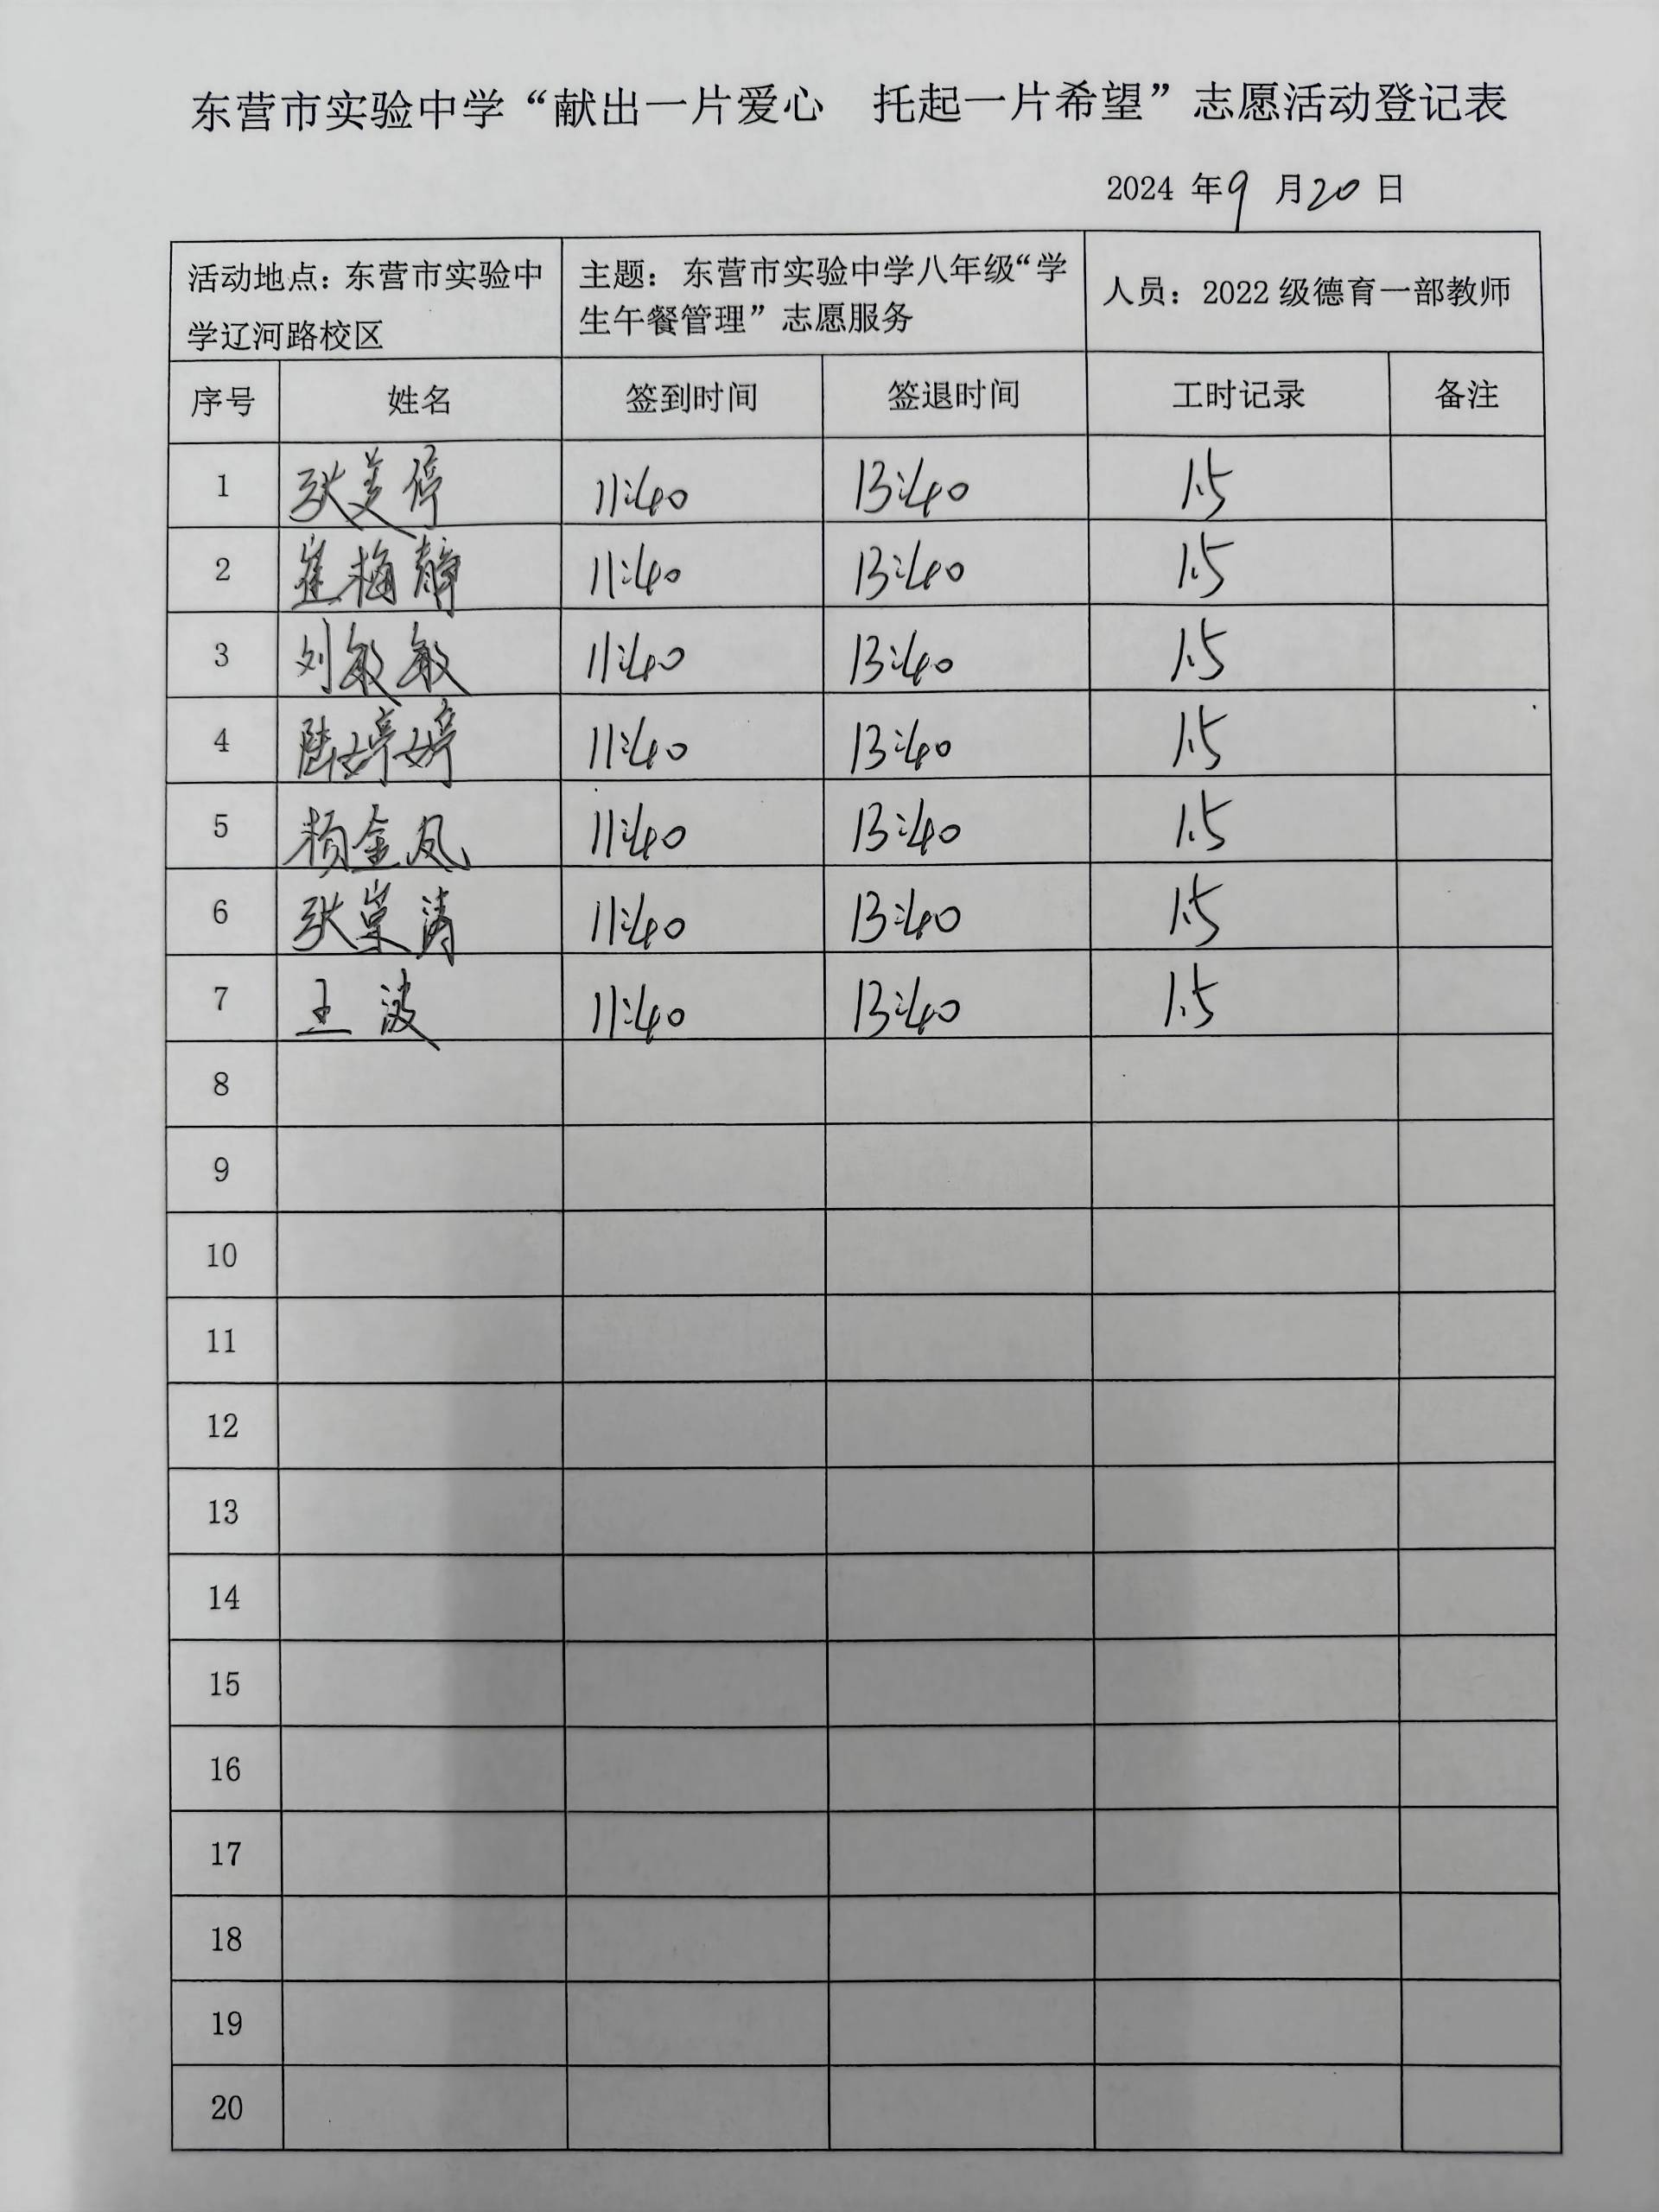 东营市实验中学“献出一片爱心　托起一片希望”志愿活动登记表
2024 年9 月20 日
活动地点：东营市实验中 主题：东营市实验中学八年级“学 人员：2022 级德育一部教师
学辽河路校区 生午餐管理”志愿服务
序号 姓名 签到时间 签退时间 工时记录 备注
1 张美停 11:40 13:40 1.5
2 崔梅静 11:40 13:40 1.5
3 刘敏敏 11:40 13:40 1.5
4 陆婷婷 11:40 13:40 1.5
5 杨金凤 11:40 13:40 1.5
6 张崇涛 11:40 13:40 1.5
7 王波 11:40 13:40 1.5
8
9
10
11
12
13
14
15
16
17
18
19
20